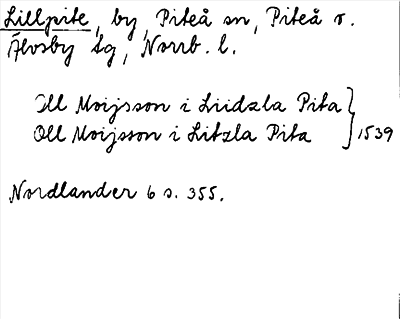 Lillpite, by, Piteå sn, Piteå r.
Älvsby tg, Norrb. l.
Oll Moijsson i Liidzla Pita
Oll Moijsson i Litzla Pita } 1539
Nordlander 6 s. 355.